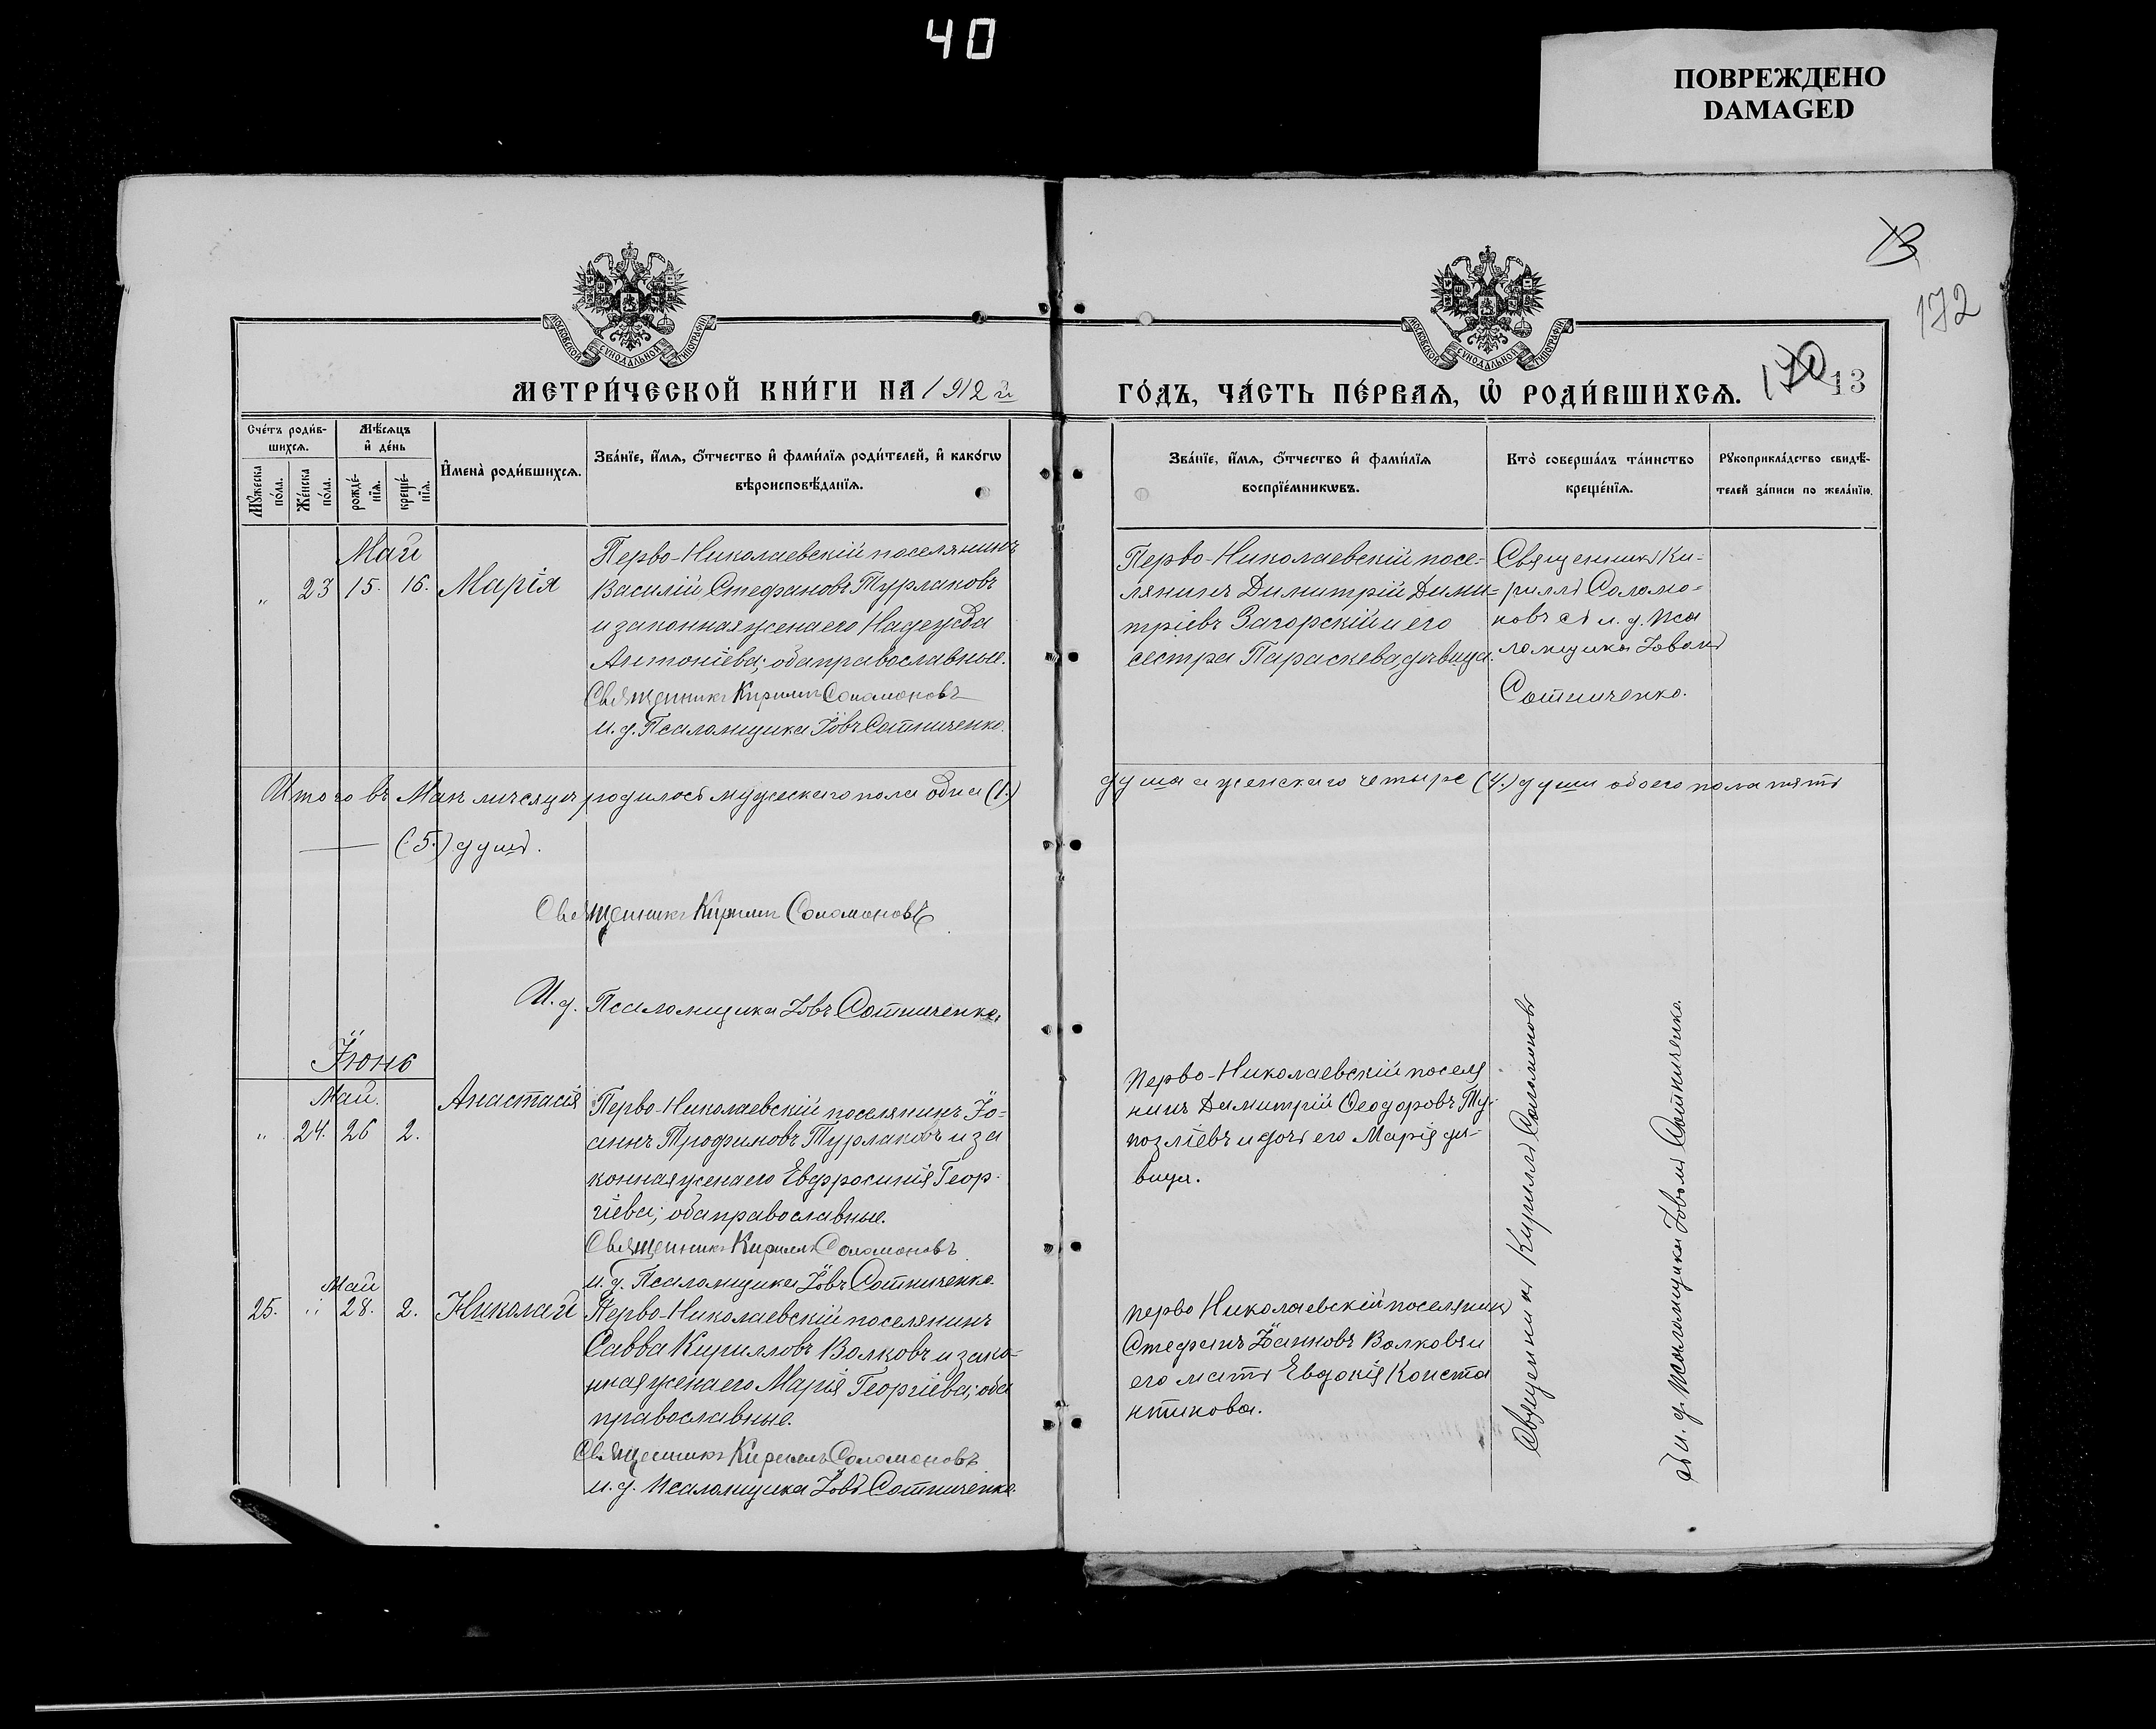 40
ПОВРЕЖДЕНО
DAMAGED
13
172
МОСКОВСКОЙ СѴНОДАЛЬНОЙ ТИПОГРАФІИ
МОСКОВСКОЙ СѴНОДАЛЬНОЙ ТИПОГРАФІИ
МЕТРИ́ЧЕСКОЙ КНИ́ГИ НА 1912 й
ГО́ДЪ, ЧА́СТЬ ПЕ́РВАѦ, Ѡ҆ РОДИ́ВШИХСѦ.
170 13
Сче́тъ роди́в-
шихсѧ.
Мꙋ́жеска
по́ла.
Же́нска
по́ла.
Мѣ́сѧцъ
и҆ де́нь
рожде́-
нїѧ.
креще́-
нїѧ.
И҆мена̀ роди́вшихсѧ.
Зва́нїе, и҆́мѧ, ѻ҆́тчество и҆ фами́лїѧ роди́телей, и҆ како́гѡ
вѣроисповѣ́данїѧ.
Зва́нїе, и҆́мѧ, ѻ҆́тчество и҆ фами́лїѧ
воспрїе́мникѡвъ.
Кто̀ соверша́лъ та́инство
креще́нїѧ.
Рꙋкоприкла́дство свидѣ́-
телей за́писи по жела́нїю.
Май
„ 23 15. 16. Марія
Перво-Николаевскій поселянинъ
Василій Стефановъ Турлаковъ
и законная жена его Надежда
Антоніева; оба православные.
Священникъ Кириллъ Соломоновъ
И. д. Псаломщика Іовъ Сотниченко.
Перво-Николаевскій посе-
лянинъ Димитрій Дими-
тріевъ Загорскій и его
сестра Параскева, дѣвица.
Священникъ Ки-
риллъ Соломо-
новъ съ и. д. пса
ломщика Іовомъ
Сотниченко.
Итого въ Маѣ мѣсяцѣ родилось мужескаго пола одна (1.)
душа а женскаго четыре (4.) души обоего пола пять
(5.) душъ.
Священникъ Кириллъ Соломоновъ
И. д. Псаломщика Іовъ Сотниченко.
Іюнь
Май.
„ 24. 26 2. Анастасія
Перво-Николаевскій поселянинъ Іо-
аннъ Трофимовъ Турлаковъ и за
конная жена его Евфросинія Геор-
гіева; оба православные.
Священникъ Кириллъ Соломоновъ
и. д. Псаломщика Іовъ Сотниченко.
Перво-Николаевскій поселя
нинъ Димитрій Ѳеодоровъ Ту-
позліевъ и дочь его Марія дѣ-
вица.
Май
25. „ 28. 2. Николай
Перво-Николаевскій поселянинъ
Савва Кирилловъ Волковъ и зако-
нная жена его Марія Георгіева; оба
православные.
Священникъ Кириллъ Соломоновъ
и. д. псаломщика Іовъ Сотниченко
Перво Николаевскій поселянинъ
Стефанъ Іоанновъ Волковъ и
его мать Евдокія Конста
нтинова.
Священникъ Кириллъ Соломоновъ
съ и. д. псаломщика Іовомъ Сотниченко.